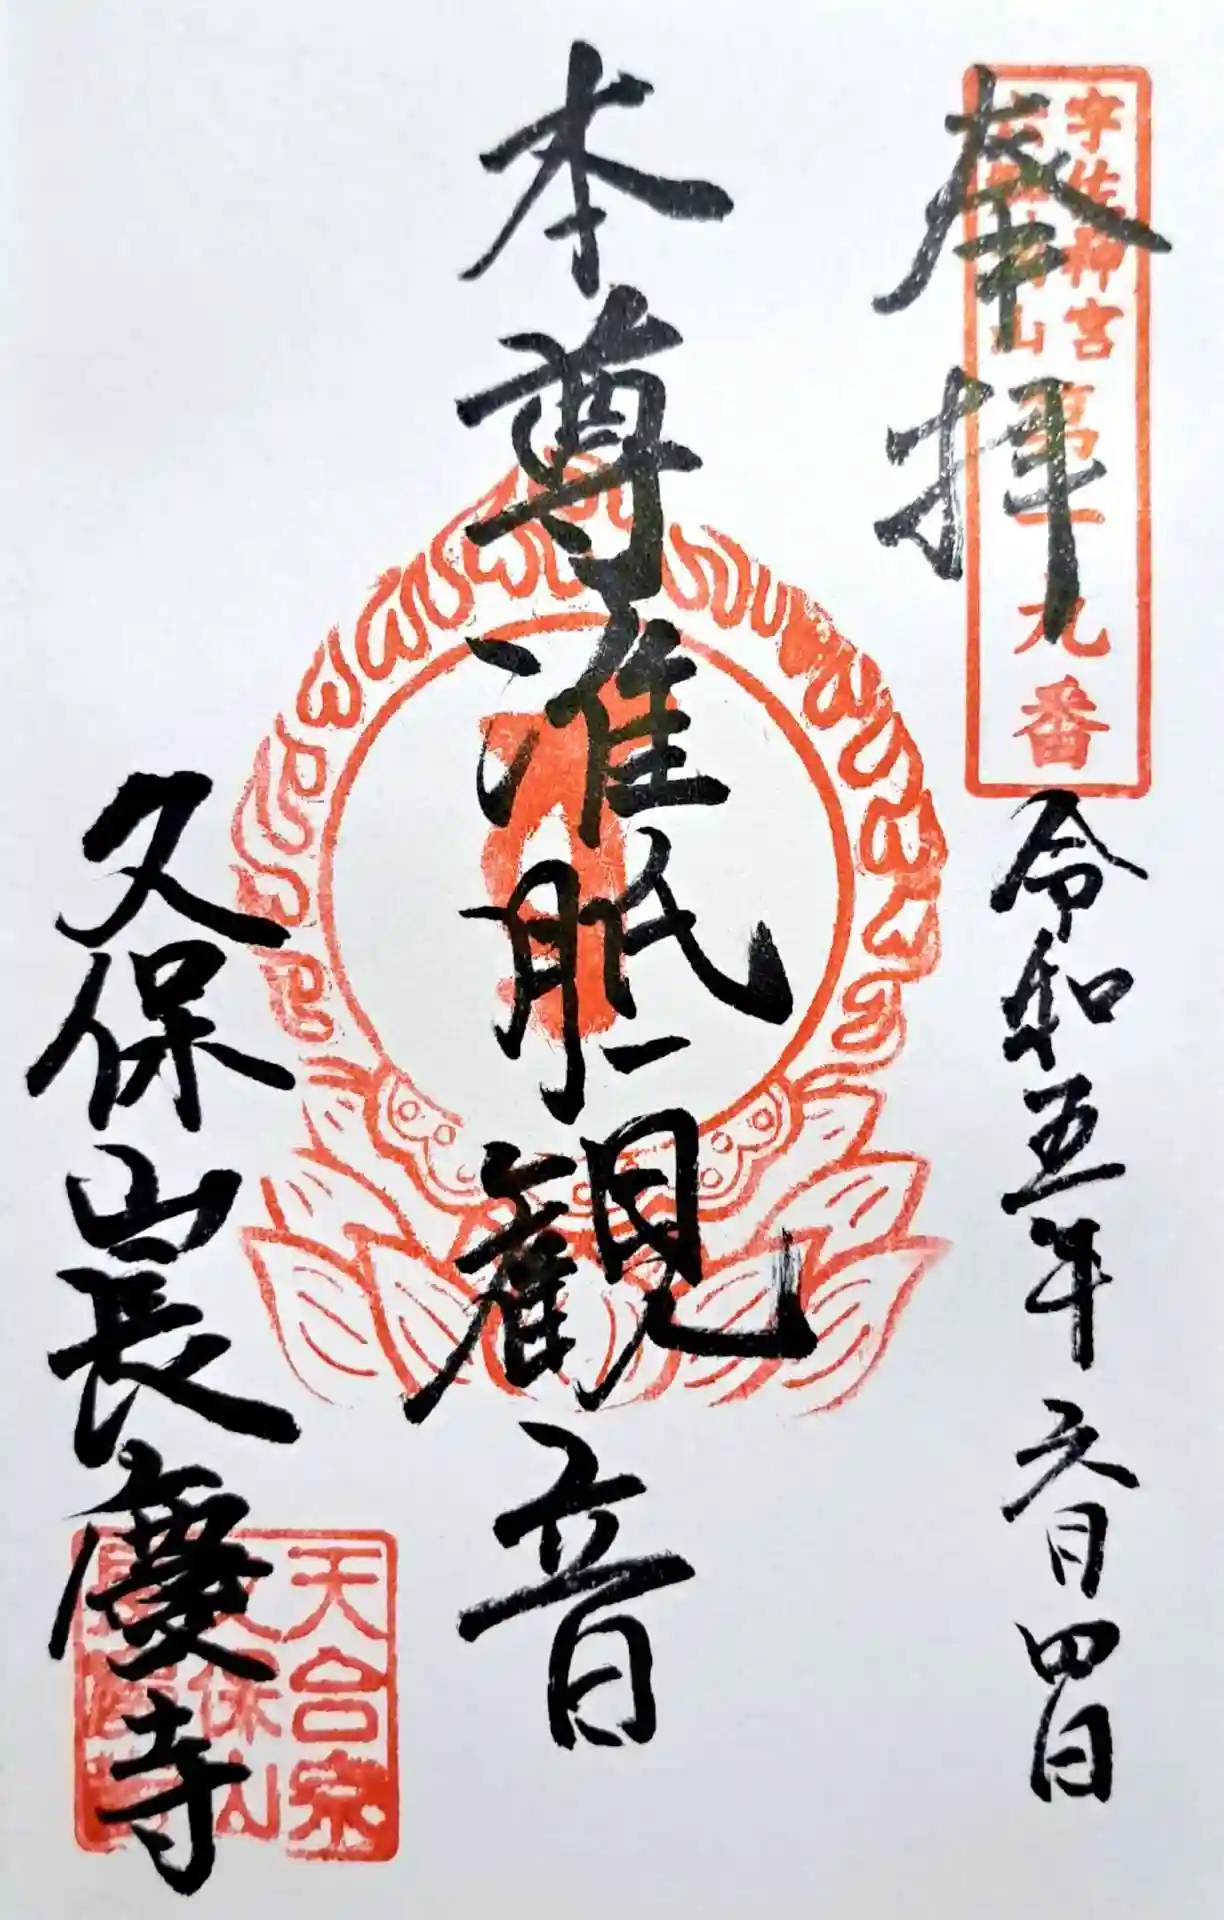 奉拝
宇佐神宮
六郷満山
第一九番
令和五年六月四日
本尊准胝観音
久保山長慶寺
天台宗
久保山
長慶寺